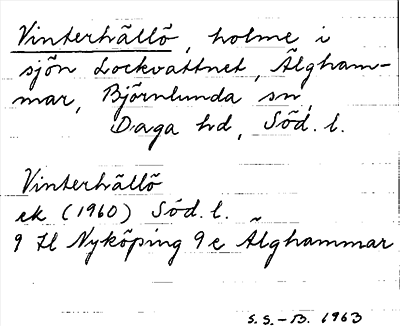 Vinterhällö, holme i
sjön Lockvattnet, Älgham-
mar, Björnlunda sn,
Daga hd, Söd. l.
Vinterhällö
ek (1960) Söd. l.
9 H Nyköping 9 c Älghammar
S.S.-B. 1963